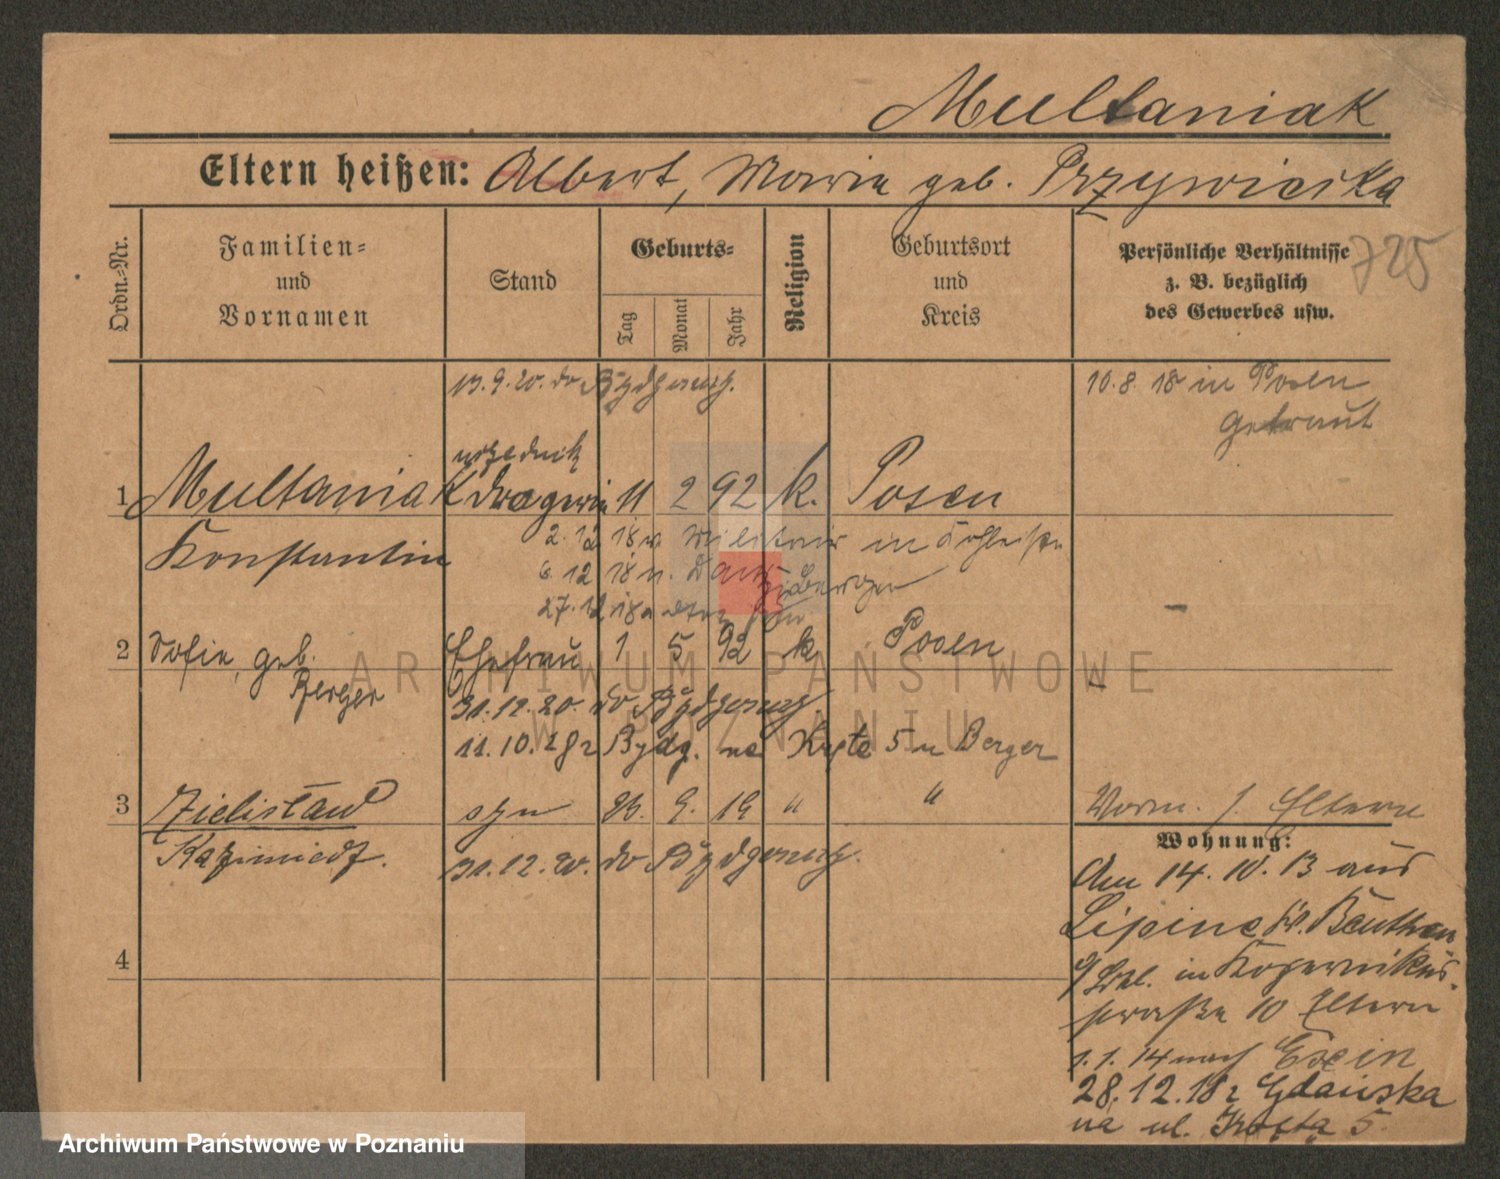 Multaniak
Eltern heißen: Albert, Maria geb. Przywicska
Ordn.=Nr.
Familien=
und
Vornamen
Stand
Geburts=
Tag
Monat
Jahr
Religion
Geburtsort
und
Kreis
Persönliche Verhältnisse
z. B. bezüglich
des Gewerbes usw.
725
13.9.20. do Bydgoszcz.
10.8.18 in Posen
getraut
urzędnik
1 Multaniak Drogerie 11 2 92 k. Posen
Konstantin
2.12 18 v. Militair in
6.12 18 n.
27.12 18
2 Sofie, geb. Ehefrau 1 5 92 k Posen
Berger
31.12.20. do Bydgoszcz
11.10.28 z Bydg. na Kręta 5 u Berger
3 Zielisław syn 23. 9. 19 " "
Kazimierz. 31.12.20. do Bydgoszcz.
Vorm. s. Eltern
Wohnung:
Am 14.10.13 aus
Lipine Kr. Beuthen
in Kopernikus-
straße 10 Eltern
1.1.14 nach Exin
28.12.18 z Gdańska
na ul. Kręta 5.
4
ARCHIWUM PAŃSTWOWE
W POZNANIU
Archiwum Państwowe w Poznaniu